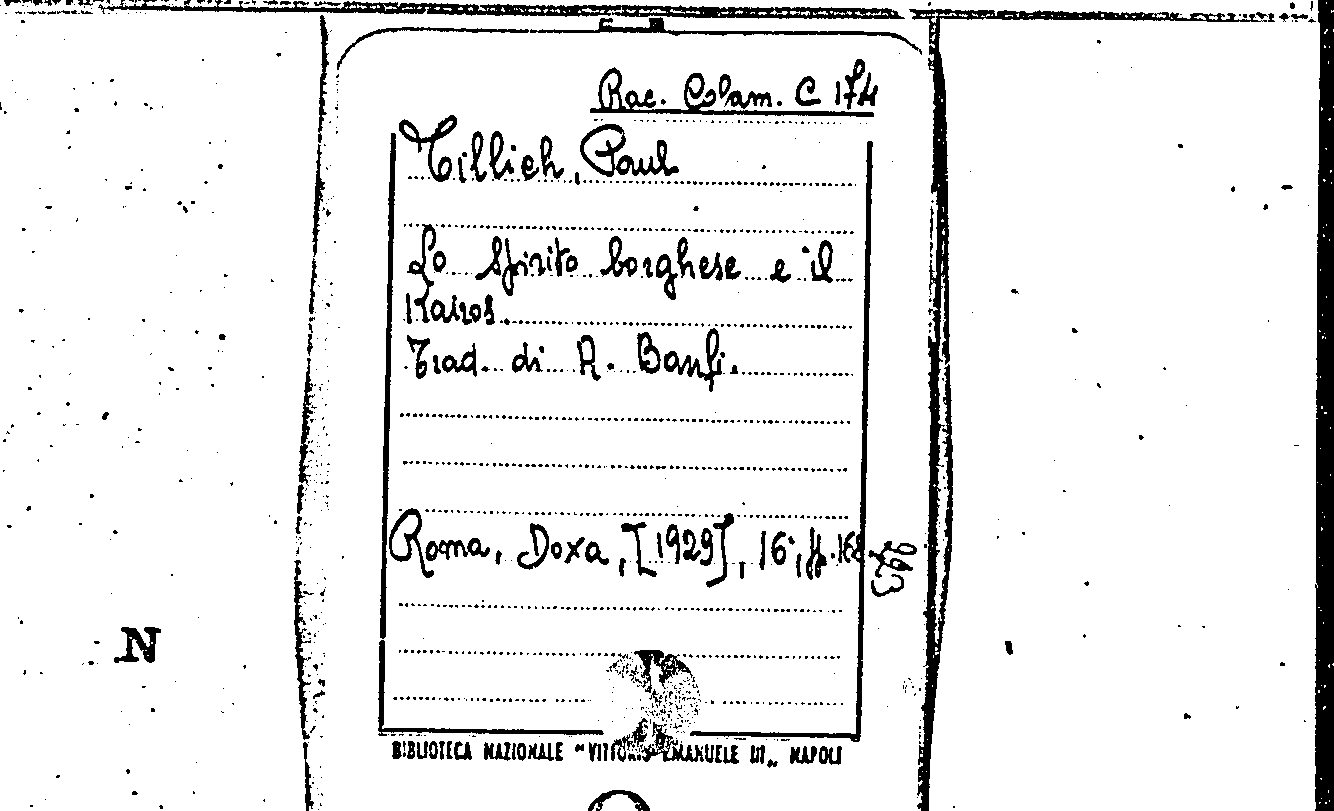 Rac. Colam. C 174
Tillich, Paul
Lo Spirito borghese e il
Kairos.
Trad. di A. Banfi.
Roma, Doxa, [1929], 16°, pp. 168
N
BIBLIOTECA NAZIONALE "VITTORIO EMANUELE III„ NAPOLI